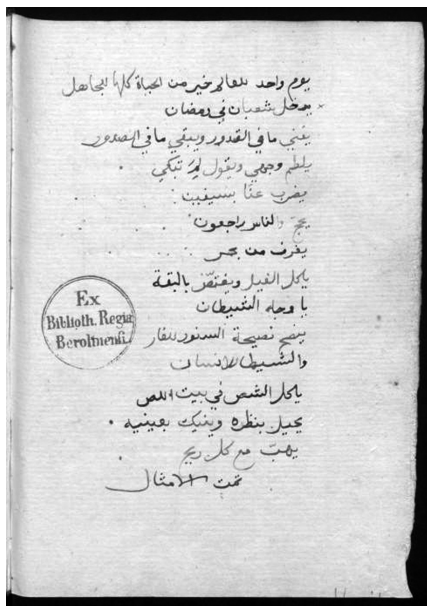 يوم واحد للعالم خير من الحياة كلها الجاهل
يدخل شعبان في رمضان
يفني ما في القدور ويبقي ما في الصدور
يلطم وجهي ويقول لم تبكي
يضرب عنا بسيفين
يحج والناس راجعون
يغرف من بحر
ياكل الفيل ويغتص بالبقة
يا وجه الشيطان
ينصح نصيحة السنور للفار
والشيطان للانسان
ياكل اللص في بيت اللص
يحيل بنظره وينيك بعينيه
يهب مع كل ريح
تمت الامثال
Ex
Biblioth. Regia
Berolinensi